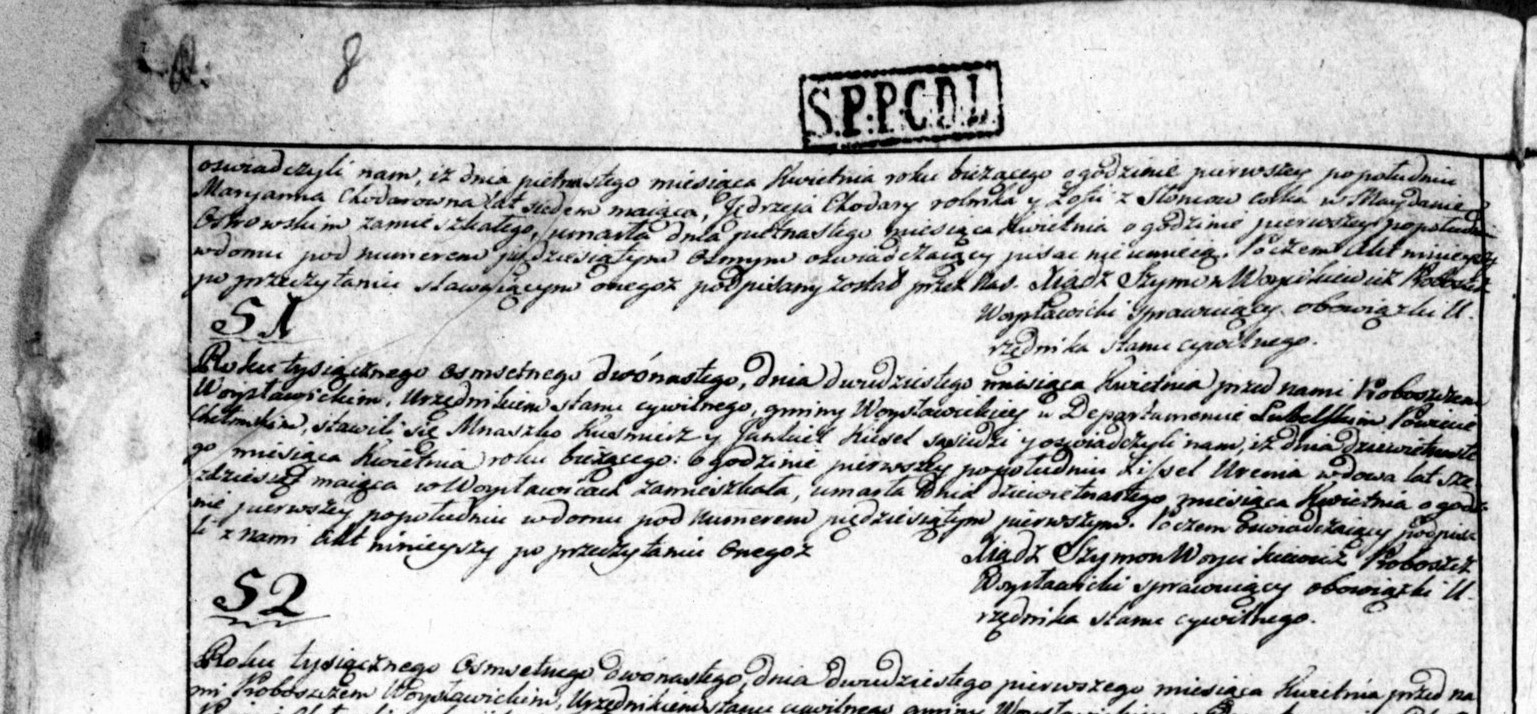 8
S.P.P.C.D.L.
oswiadczyli nam, iż dnia piętnastego miesiąca Kwietnia roku bieżącego o godzinie pierwszey popołudniu
Maryanna Chodarowna lat siedem maiąca, Jędrzeja Chodary rolnika y Zofii z Słoniow corka w Maydanie
Ostrowskim zamieszkałego, umarła dnia piętnastego miesiąca Kwietnia o godzinie pierwszey popołudniu
w domu pod numerem pięćdziesiątym osmym oswiadczaiący pisac nie umieią. Poczem Akt ninieyszy
po przeczytaniu stawaiącym onegoż podpisany został przez Nas. Xiądz Szymon Woycikiewicz Proboszcz
Woysławicki sprawuiący obowiązki U-
rzędnika stanu cywilnego.
51
Roku tysiącznego osmsetnego dwónastego, dnia dwudziestego miesiąca Kwietnia przed nami Proboszczem
Woysławickim, Urzędnikiem stanu cywilnego, gminy Woysławickiey w Departamencie Lubelskim Powiecie
Chełmskim, stawili się Mnaszko Kusmierz y Jankiel Kisel sąsiedzi y oswiadczyli nam, iż dnia dziewiętnaste
go miesiąca Kwietnia roku bieżącego o godzinie pierwszey popołudniu Zissel Urema wdowa lat sze
zdziesiąt maiąca w Woysławicach zamieszkała, umarła dnia dziewiętnastego miesiąca Kwietnia o godzi
nie pierwszey popołudniu w domu pod numerem pięćdziesiątym pierwszym. Poczem oswiadczaiący podpisa
li z nami Akt ninieyszy po przeczytaniu onegoż
Xiądz Szymon Woycikiewicz Proboszcz
Woysławicki sprawuiący obowiązki U-
rzędnika stanu cywilnego.
52
Roku tysiącznego osmsetnego dwónastego, dnia dwudziestego pierwszego miesiąca Kwietnia przed na
mi Proboszczem Woysławickim, Urzędnikiem stanu cywilnego gminy